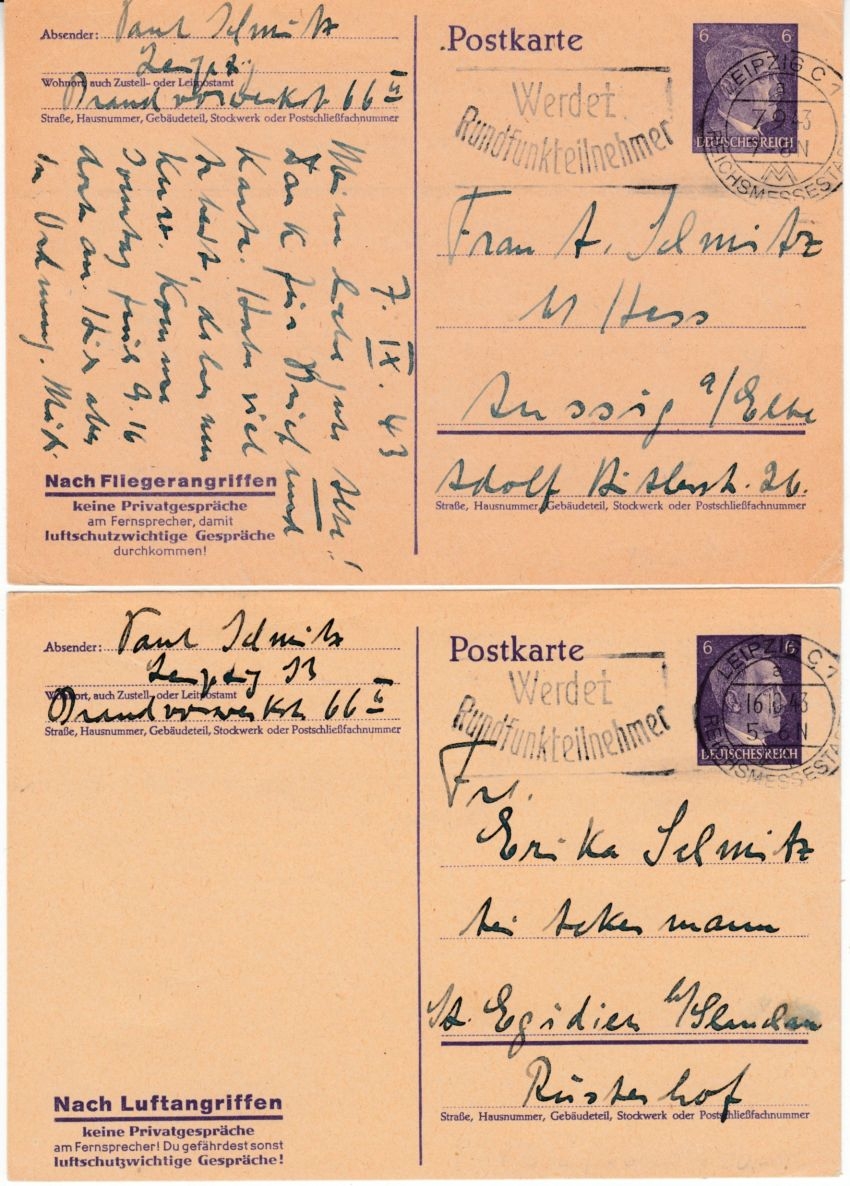 Absender: Paul Schmitz
Leipzig
Wohnort, auch Zustell- oder Leitpostamt
Brandvorwerkst. 66 II
Straße, Hausnummer, Gebäudeteil, Stockwerk oder Postschließfachnummer
Postkarte
Werdet
Rundfunkteilnehmer
6 6
DEUTSCHES REICH
LEIPZIG C 1
a
7.9.43
N
REICHSMESSESTA
7. IX. 43
Mein liebes gutes
Dank für Brief und
Karte. Habe viel
zu tun, daher nur
kurz. Komme
Sonntag früh 9.16
dort an. Hier alles
in Ordnung.
Nach Fliegerangriffen
keine Privatgespräche
am Fernsprecher, damit
luftschutzwichtige Gespräche
durchkommen!
Frau A. Schmitz
b/ Hess
Aussig a/Elbe
Adolf Hitlerst. 26.
Straße, Hausnummer, Gebäudeteil, Stockwerk oder Postschließfachnummer
Absender: Paul Schmitz
Leipzig
Wohnort, auch Zustell- oder Leitpostamt
Brandvorwerkst. 66 II
Straße, Hausnummer, Gebäudeteil, Stockwerk oder Postschließfachnummer
Postkarte
Werdet
Rundfunkteilnehmer
6 6
DEUTSCHES REICH
LEIPZIG C 1
a
16.10.43
5-6 N
REICHSMESSESTA
Frl.
Erika Schmitz
bei Ackermann
St. Egidien
Rüsterhof
Straße, Hausnummer, Gebäudeteil, Stockwerk oder Postschließfachnummer
Nach Luftangriffen
keine Privatgespräche
am Fernsprecher! Du gefährdest sonst
luftschutzwichtige Gespräche!